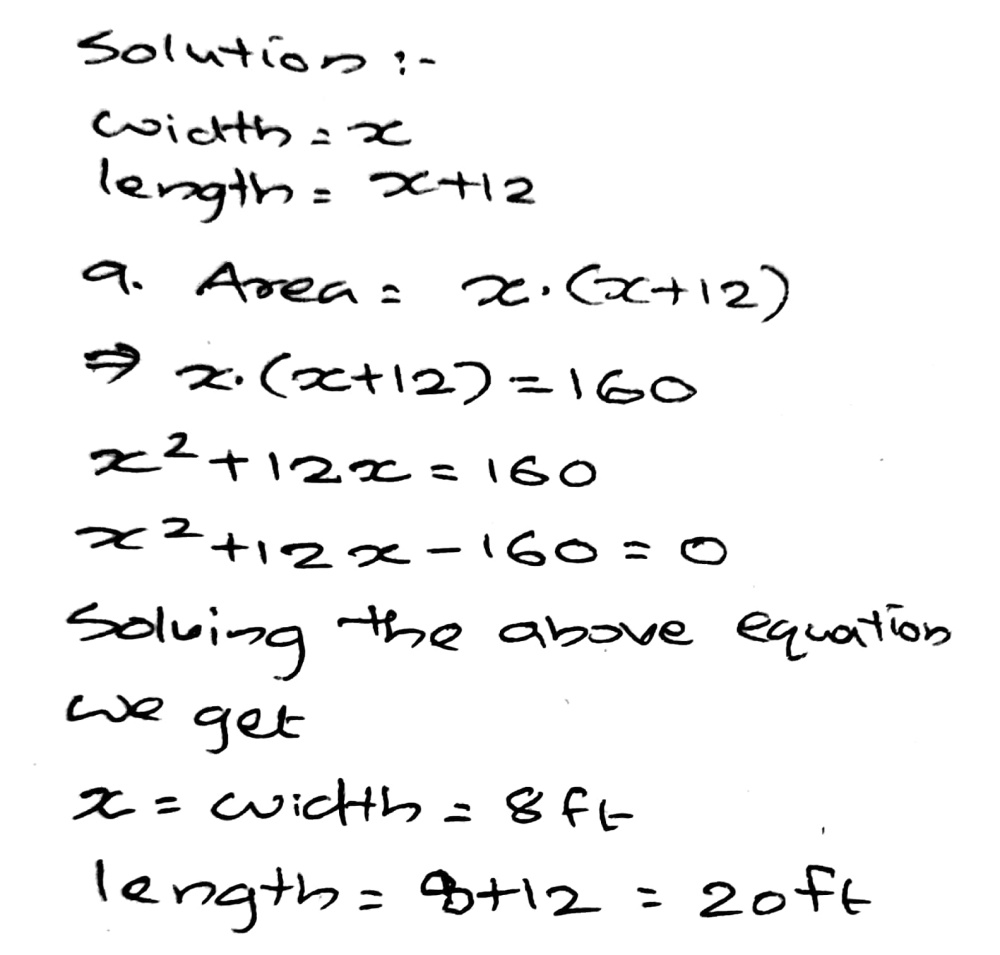 Solution :-
width = x
length = x+12
a. Area = x.(x+12)
⇒ x.(x+12) = 160
x²+12x = 160
x²+12x-160 = 0
Solving the above equation
we get
x = width = 8ft
length = 8+12 = 20ft